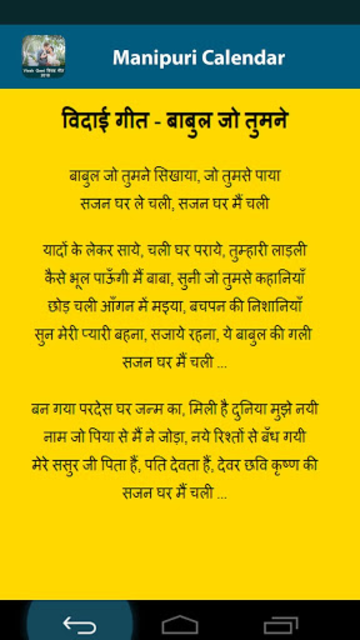 Manipuri Calendar
विदाई गीत - बाबुल जो तुमने
बाबुल जो तुमने सिखाया, जो तुमसे पाया
सजन घर ले चली, सजन घर मैं चली
यादों के लेकर साये, चली घर पराये, तुम्हारी लाड़ली
कैसे भूल पाऊँगी मैं बाबा, सुनी जो तुमसे कहानियाँ
छोड़ चली आँगन में मइया, बचपन की निशानियाँ
सुन मेरी प्यारी बहना, सजाये रहना, ये बाबुल की गली
सजन घर मैं चली ...
बन गया परदेस घर जन्म का, मिली है दुनिया मुझे नयी
नाम जो पिया से मैं ने जोड़ा, नये रिश्तों से बँध गयी
मेरे ससुर जी पिता हैं, पति देवता हैं, देवर छवि कृष्ण की
सजन घर मैं चली ...